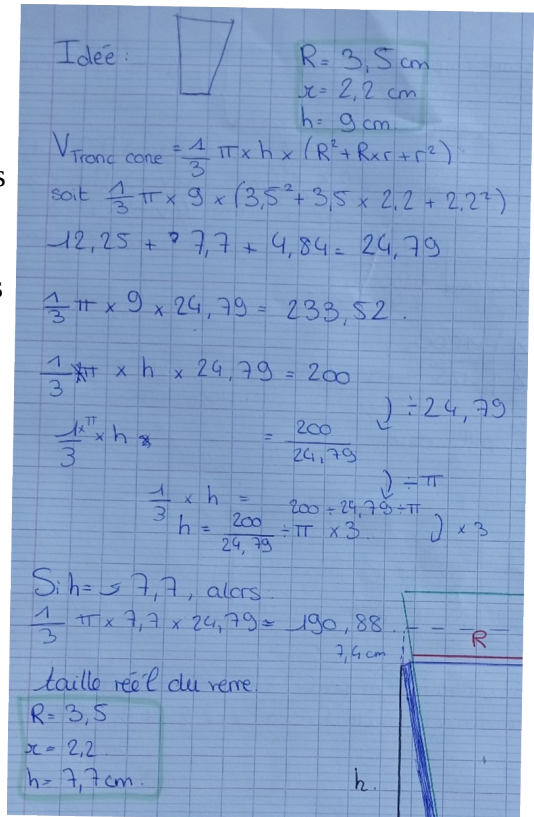 Idée :
R = 3,5 cm
x = 2,2 cm
h = 9 cm.
V Tronc cone = 1/3 π × h × (R² + R×r + r²)
s
soit 1/3 π × 9 × (3,5² + 3,5 × 2,2 + 2,2²)
12,25 + 7,7 + 4,84 = 24,79
s
1/3 π × 9 × 24,79 = 233,52.
1/3 π × h × 24,79 = 200
÷ 24,79
1/3 × π × h = 200/24,79
÷ π
1/3 × h = 200 ÷ 24,79 ÷ π
h = 200/24,79 ÷ π × 3
× 3
Si h = 7,7, alors
1/3 π × 7,7 × 24,79 = 190,88.
R
7,4 cm
taille réél du verre.
R = 3,5
x = 2,2
h = 7,7 cm.
h.